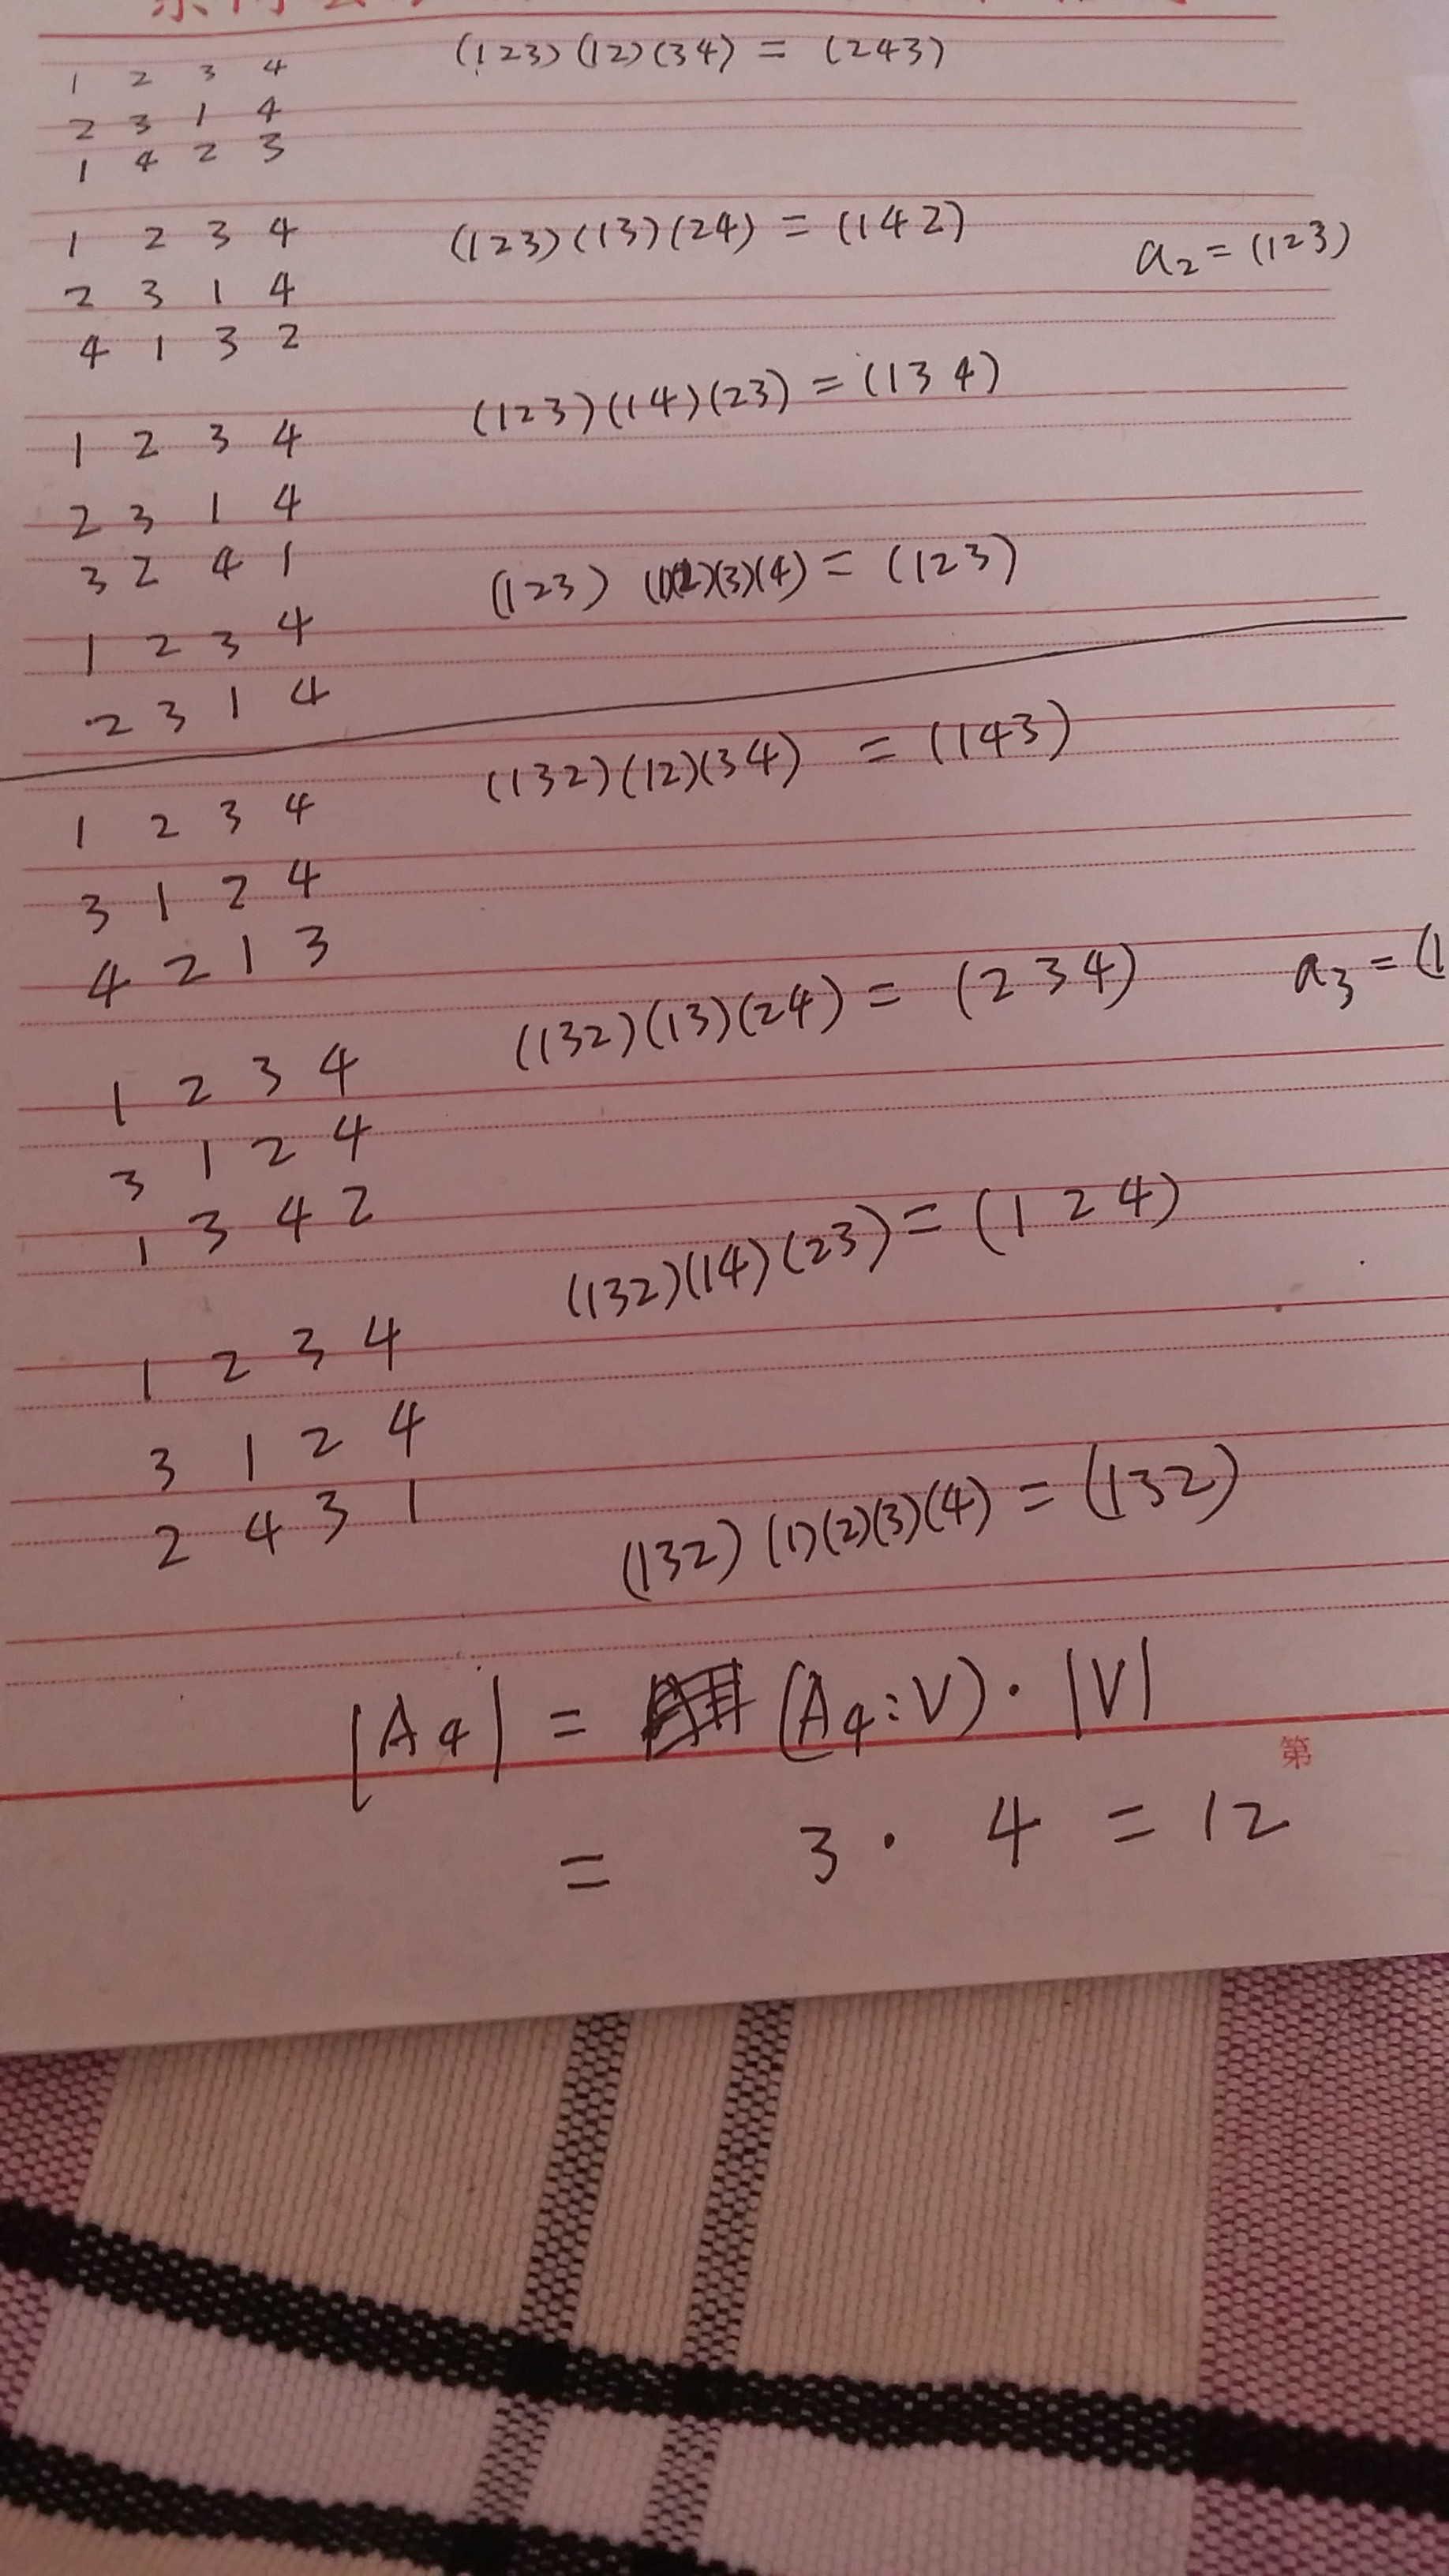 (123)(12)(34) = (243)
1 2 3 4
2 3 1 4
1 4 2 3
(123)(13)(24) = (142)
a₂ = (123)
1 2 3 4
2 3 1 4
4 1 3 2
(123)(14)(23) = (134)
1 2 3 4
2 3 1 4
3 2 4 1
(123) (1)(2)(3)(4) = (123)
1 2 3 4
2 3 1 4
(132)(12)(34) = (143)
1 2 3 4
3 1 2 4
4 2 1 3
(132)(13)(24) = (234)
a₃ = (1
1 2 3 4
3 1 2 4
1 3 4 2
(132)(14)(23) = (124)
1 2 3 4
3 1 2 4
2 4 3 1
(132) (1)(2)(3)(4) = (132)
|A₄| = (A₄:V)·|V|
第
= 3 · 4 = 12